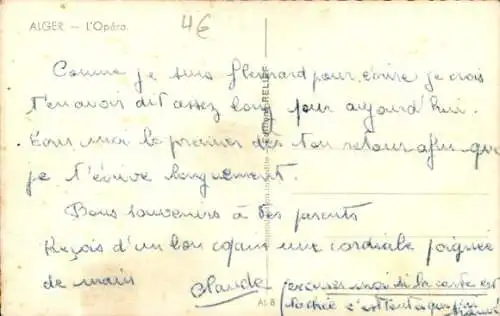 ALGER — L'Opéra.
4€
Comme je suis flemmard pour écrire je crois
t'en avoir dit assez long pour aujourd'hui.
Écris moi le premier dès ton retour afin que
je t'écrive longuement.
Bons souvenirs à tes parents
Reçois d'un bon copain une cordiale poignée
de main Claude
excuses moi si la carte est
tachée c'est
AL 8